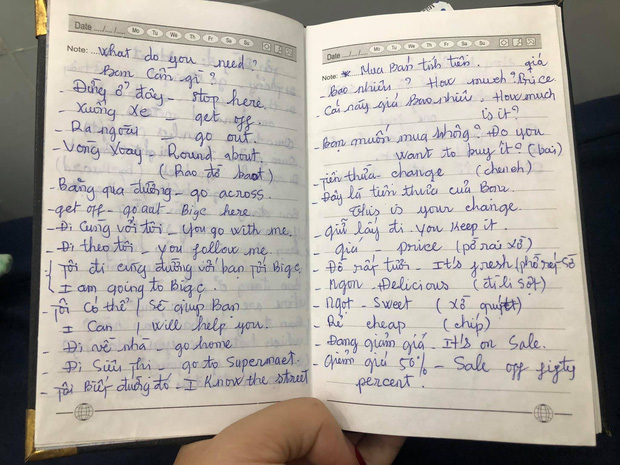 Date __/__/__ Mo Tu We Th Fr Sa Su
Note: what do you need?
Bạn Cần gì?
- Đừng ở đây - stop here.
- Xuống xe - get off.
- Ra ngoài go out.
- Vòng xoay - Round about.
(Rao đờ baot)
- Băng qua đường - go across.
- get off - go out - Bigc here
- Đi Cùng với tôi - you go with me.
- Đi theo tôi - you follow me
Tôi đi cùng đường với bạn tới Bigc
I am going to Bigc
Tôi Có thể / Sẽ giúp Bạn
I Can / will help you.
- Đi về nhà - go home
- Đi Siêu Thị - go to Supermaet.
- Tôi Biết đường đó - I Know the street
Date __/__/__ Mo Tu We Th Fr Sa Su
Note: * Mua Bán tính tiền. giá
- Bao nhiêu? How much? Price
- Cái này giá Bao nhiêu. How much
is it?
Bạn muốn mua không? Do you
want to buy it? (bai)
- Tiền thừa - change (chench)
- Đây là tiền thừa của Bạn.
This is your change.
giữ lấy đi you keep it.
- giá - price (pờ rai xờ)
- Đồ rất tươi - It's fresh
- Ngon - Delicious (đi li sớt)
- Ngọt - Sweet (xờ quýt)
- Rẻ cheap (chíp)
- Đang giảm giá - It's on Sale.
- Giảm giá 50% - Sale off figty
percent.